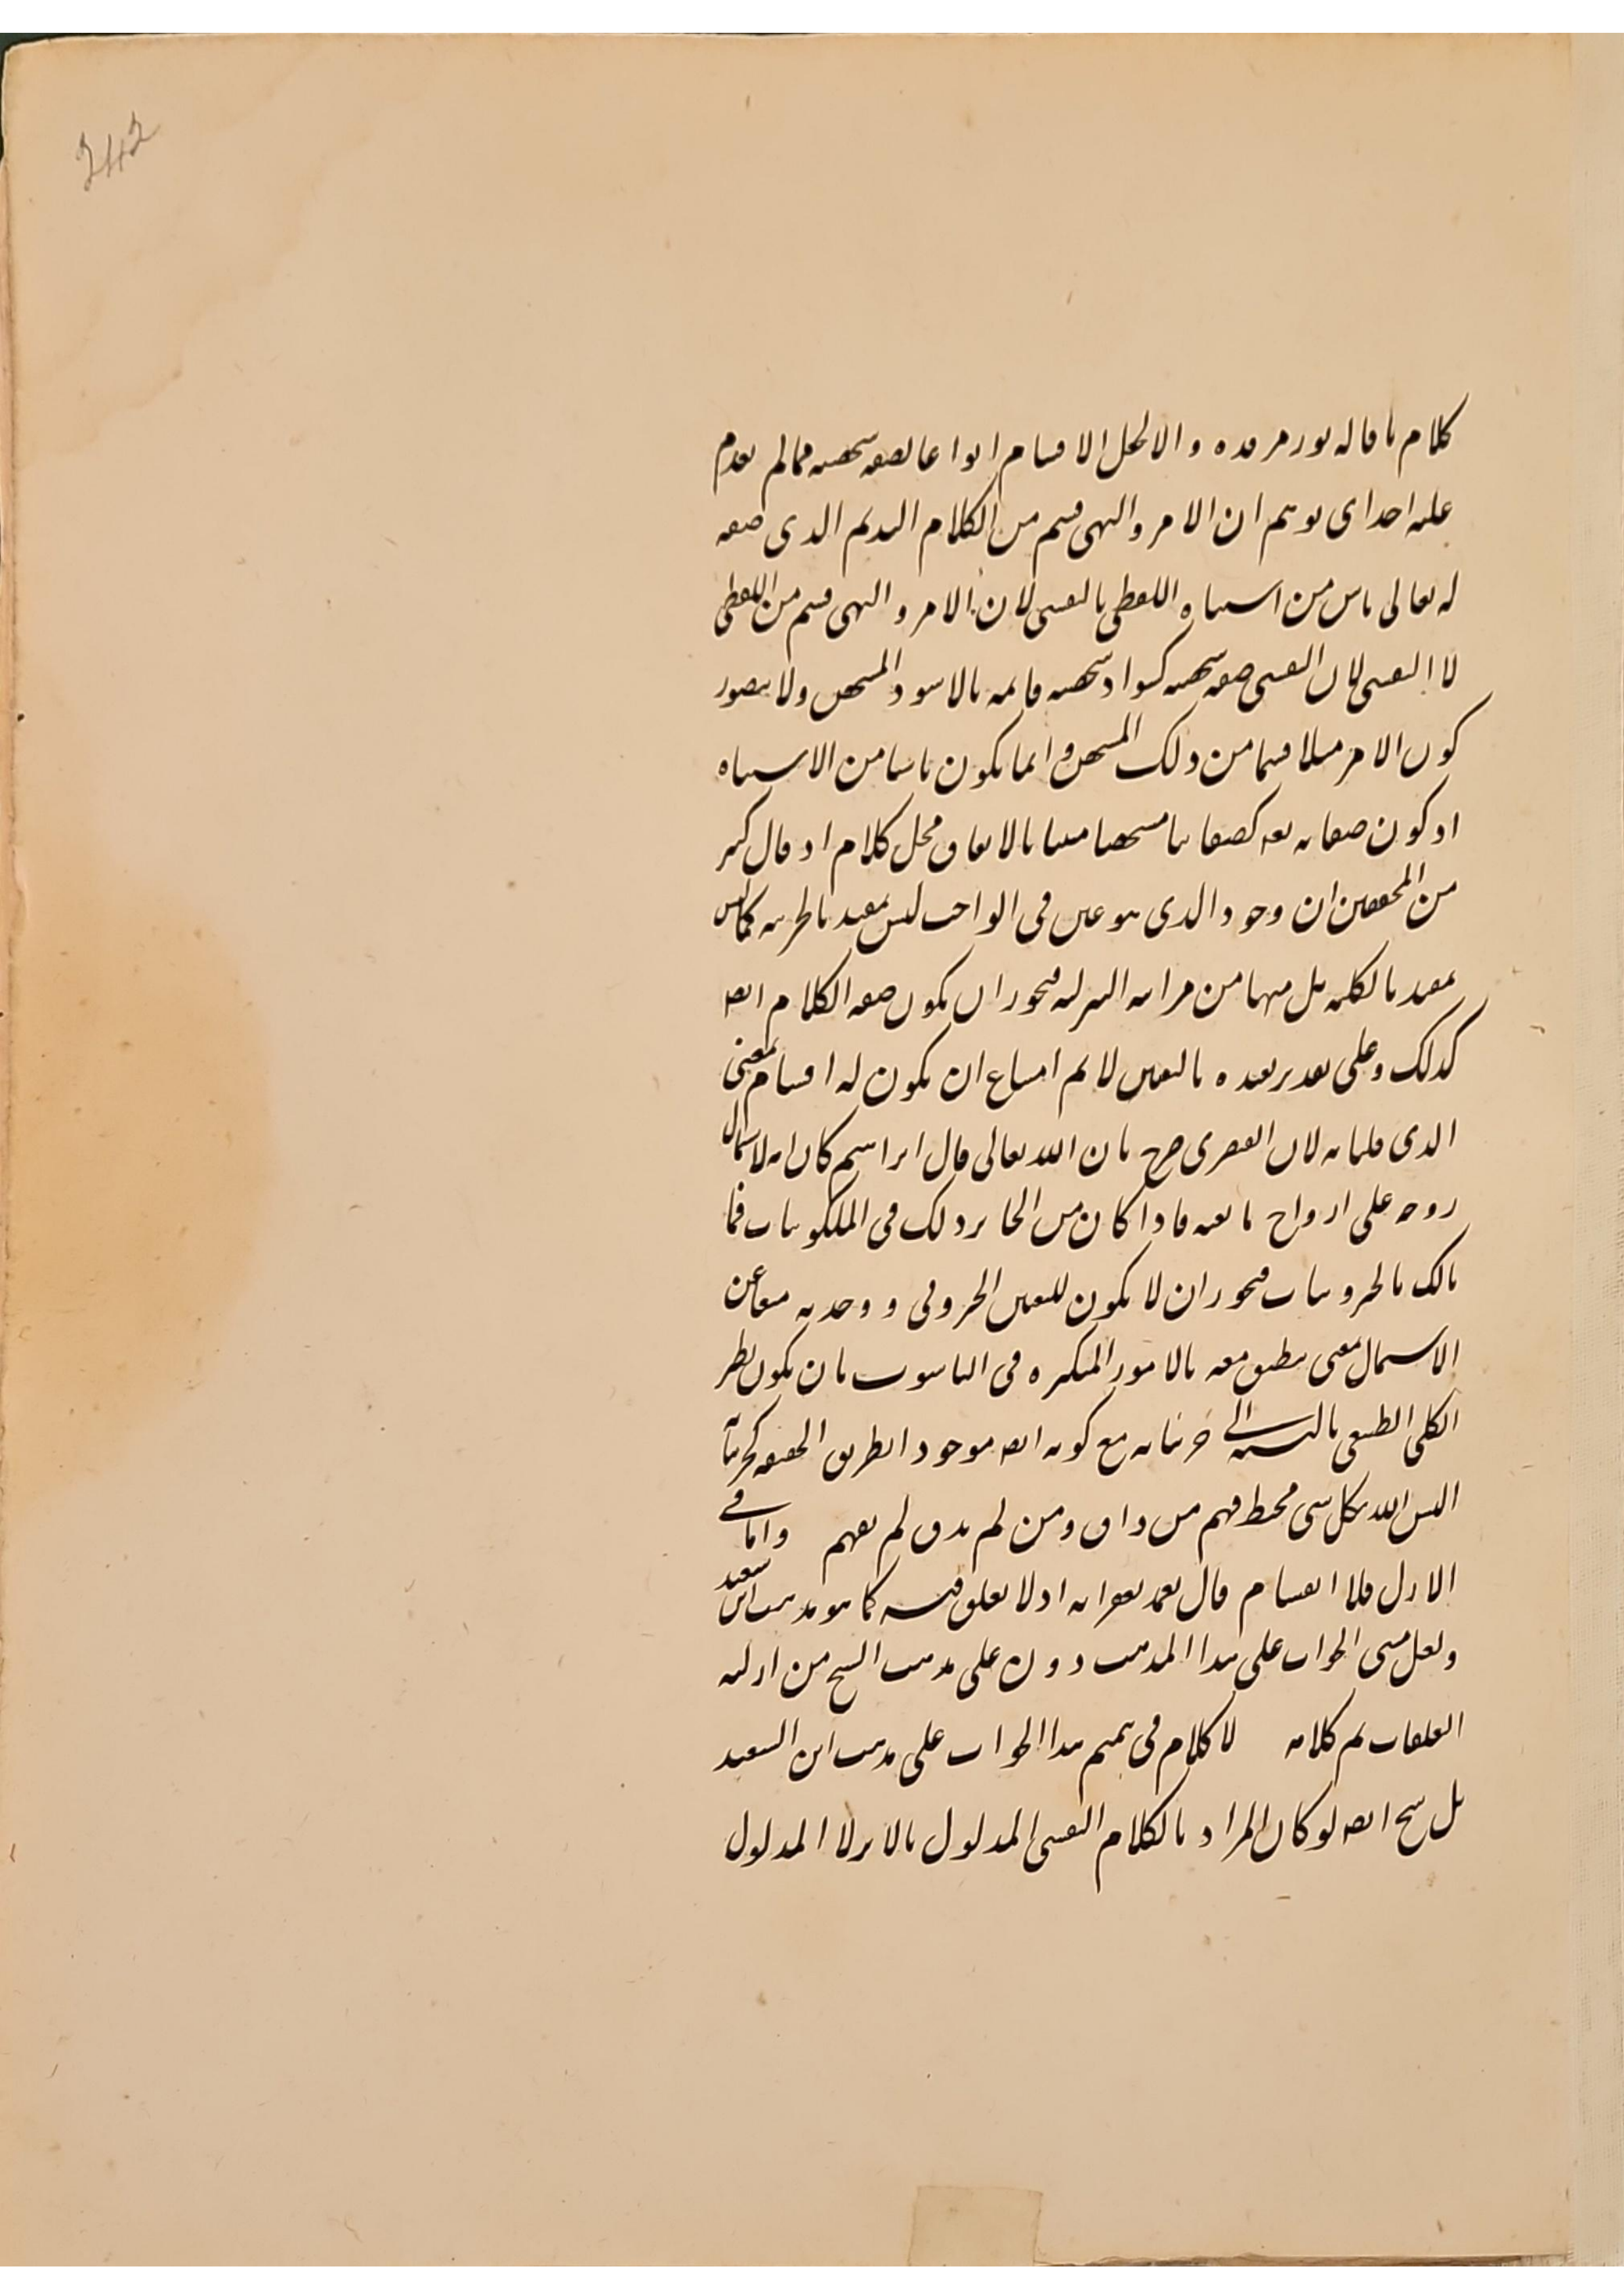 242
كلام ما قاله نور مرقده والا لجعل الاقسام انواعا لصفة شخصية مما لم يقدم
عليه احد اى توهم ان الامر والنهى قسم من الكلام القديم الذى صفة
له تعالى ناش من اشتباه اللفظى بالنفسى لان الامر والنهى قسم من اللفظى
لا النفسى لان النفسى صفة شخصية كسواد شخصية قايمة بالاسود المشخص ولا يتصور
كون الامر مثلا قسما من ذلك المشخص وانما يكون ناشيا من الاشتباه
اذ كون صفاته تعه كصفاتنا مشخصا معينا بالاتفاق محل كلام اذ قال كثير
من المحققين ان وجود الذى هو عين فى الواجب ليس بمقيد بالجزئية كما ليس
بمقيد بالكلية بل هما من مراتبه التنزلية فيجوز ان يكون صفة الكلام ايضه
كذلك وعلى تقدير تقيده بالتعين لا يم امتناع ان يكون له اقسام بمعنى
الذى قلناه لان القيصرى صرح بان الله تعالى قال ابراهيم كان امة لاشتمال
روحه على ارواح تابعيه فاذا كان من الجايز ذلك فى الملكوتيات فما
بالك بالجبروتيات فيجوز ان لا يكون للتعين الجبروتى ووحدته معا عن
الاشتمال بمعنى ينطبق معه بالامور المتكثرة فى الناسوت بان يكون نظر
الكلى الطبعى بالنسبة الى جزئياته مع كونه ايضه موجودا بطريق الحقيقة كجزئياته
اليس الله بكل شى محيط فهم من ذاق ومن لم يذق لم يفهم واما فى
الازل فلا انقسام قال تغمد بغفرانه اذ لا تعلق فيه كما هو مذهب ابن سعيد
ولعل مبنى الجواب على هذا المذهب دون على مذهب الشيخ من ازلية
التعلقات تم كلامه لا كلام فى تتميم هذا الجواب على مذهب ابن السعيد
بل يتم ايضه لو كان المراد بالكلام النفسى المدلول بالاثر لا المدلول